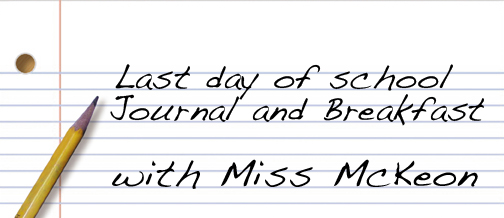 Last day of school
Journal and Breakfast
with Miss McKeon